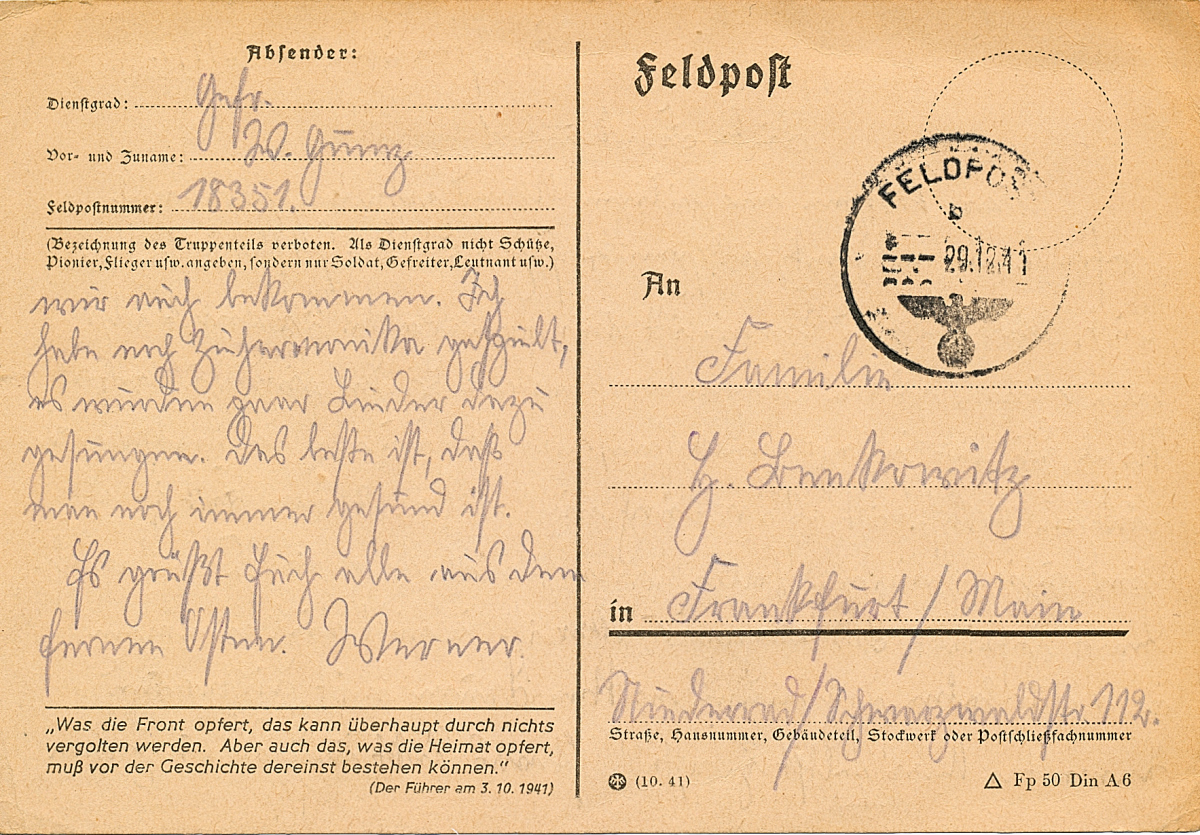 Absender:
Dienstgrad: Gefr.
Vor- und Zuname: W. Günz
Feldpostnummer: 18351.
(Bezeichnung des Truppenteils verboten. Als Dienstgrad nicht Schütze,
Pionier, Flieger usw. angeben, sondern nur Soldat, Gefreiter, Leutnant usw.)
wir auch bekommen. Ich
habe noch Ziehharmonika gespielt,
es wurden paar Lieder dazu
gesungen. Das beste ist, daß
man noch immer gesund ist.
Es grüßt Euch alle aus dem
fernen Osten. Werner.
„Was die Front opfert, das kann überhaupt durch nichts
vergolten werden. Aber auch das, was die Heimat opfert,
muß vor der Geschichte dereinst bestehen können.“
(Der Führer am 3. 10. 1941)
Feldpost
FELDPOST
b
29.12.41
An
Familie
H. Benkowitz
in Frankfurt / Main
Niederrad / Schwarzwaldstr. 112.
Straße, Hausnummer, Gebäudeteil, Stockwerk oder Postschließfachnummer
(10. 41)
Fp 50 Din A 6